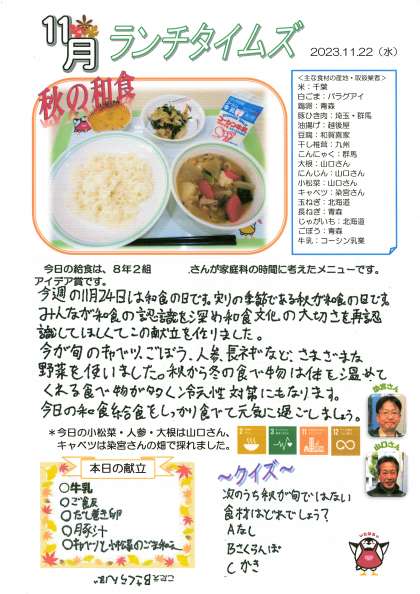 11月 ランチタイムズ
2023.11.22（水）
秋の和食
＜主な食材の産地・取扱業者＞
米：千葉
白ごま：パラグアイ
鶏卵：青森
豚ひき肉：埼玉・群馬
油揚げ：越後屋
豆腐：和賀喜家
干し椎茸：九州
こんにゃく：群馬
大根：山口さん
にんじん：山口さん
小松菜：山口さん
キャベツ：染宮さん
玉ねぎ：北海道
長ねぎ：青森
じゃがいも：北海道
ごぼう：青森
牛乳：コーシン乳業
今日の給食は、８年２組　　　さんが家庭科の時間に考えたメニューです。
アイデア賞です。
今週の11月24日は和食の日です。実りの季節である秋が和食の日です。
みんなが和食の認識を深め和食文化の大切さを再認
識してほしくてこの献立を作りました。
今が旬のキャベツ、ごぼう、人参、長ネギなど、さまざまな
野菜を使いました。秋から冬の食べ物は体を温めて
くれる食べ物が多く冷え性対策にもなります。
今日の和食給食をしっかり食べて元気に過ごしましょう。
＊今日の小松菜・人参・大根は山口さん、
キャベツは染宮さんの畑で採れました。
2 3 11 12
染宮さん
山口さん
本日の献立
○牛乳
○ご飯
○だし巻き卵
○豚汁
○キャベツと小松菜のごま和え
～クイズ～
次のうち秋が旬ではない
食材はどれでしょう？
A なし
B さくらんぼ
C かき
こたえ B さくらんぼ